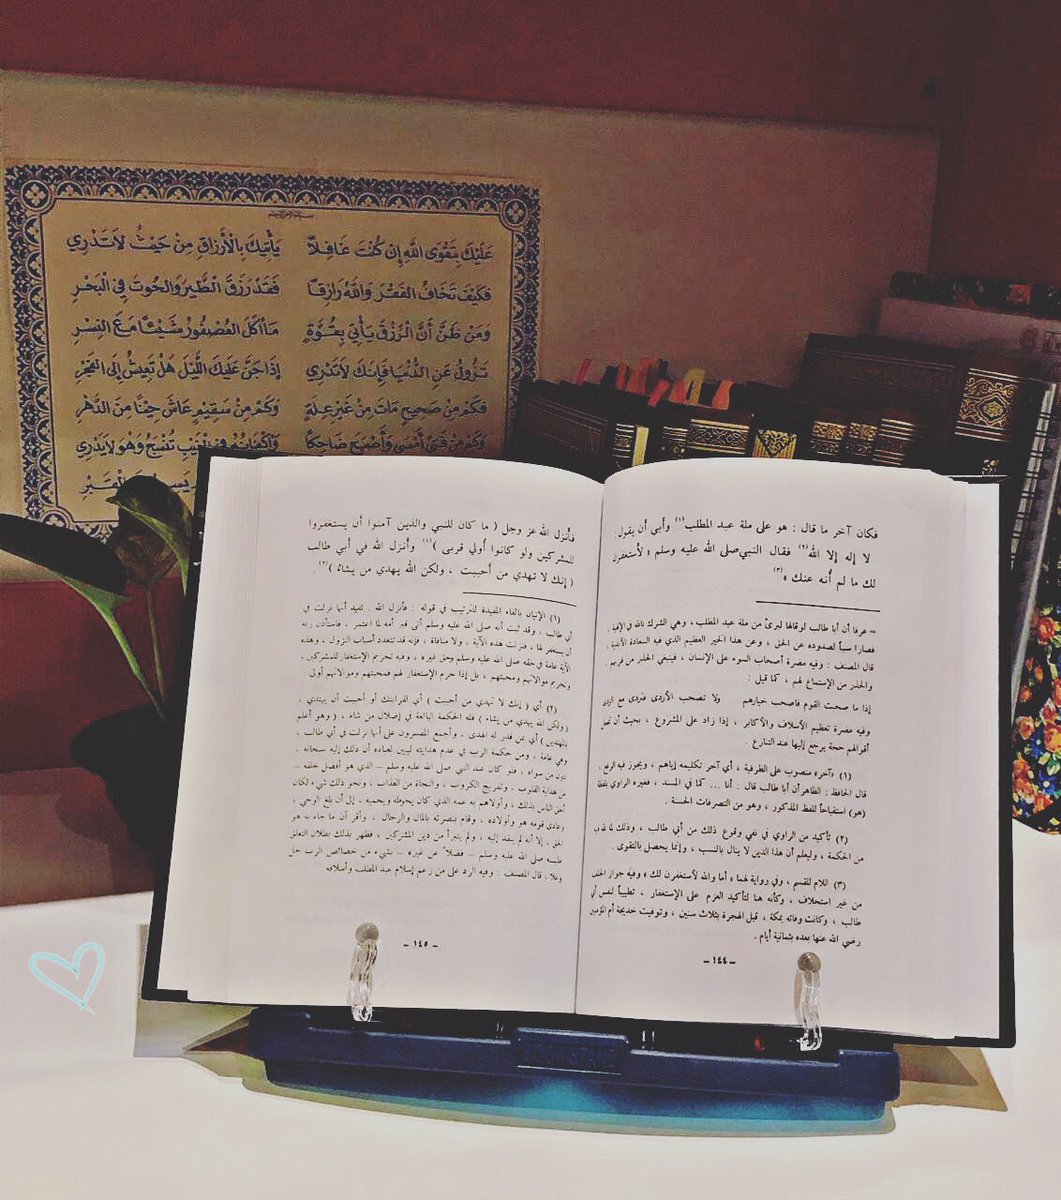 عَلَيْكَ بِتَقْوَى اللهِ إِنْ كُنْتَ غَافِلاً يَأْتِيكَ بِالْأَرْزَاقِ مِنْ حَيْثُ لَا تَدْرِي
فَكَيْفَ تَخَافُ الفَقْرَ وَاللهُ رَازِقًا فَقَدْ رَزَقَ الطَّيْرَ وَالحُوتَ فِي الْبَحْرِ
وَمَنْ ظَنَّ أَنَّ الرِّزْقَ يَأْتِي بِقُوَّةٍ مَا أَكَلَ العُصْفُورُ شَيْئًا مَعَ النِّسْرِ
تَزُولُ عَنِ الدُّنْيَا فَإِنَّكَ لَا تَدْرِي إِذَا جَنَّ عَلَيْكَ اللَّيْلُ هَلْ تَعِيشُ إِلَى الفَجْرِ
فَكَمْ مِنْ صَحِيحٍ مَاتَ مِنْ غَيْرِ عِلَّةٍ وَكَمْ مِنْ سَقِيمٍ عَاشَ حِينًا مِنَ الدَّهْرِ
وَكَمْ مِنْ فَتًى أَمْسَى وَأَصْبَحَ ضَاحِكًا تُنْسَجُ وَهُوَ لَا يَدْرِي
الْقَبْرِ
فكان آخر ما قال : هو على ملة عبد المطلب(١) وأبى أن يقول
لا إله إلا الله(٢) فقال النبي صلى الله عليه وسلم « لأستغفرن
لك ما لم أنه عنك »(٣)
= عرفا أن أبا طالب لو قالها لبرئ من ملة عبد المطلب ، وهي الشرك بالله في الإلهية ،
فصارا سبباً لصدوده عن الحق ، وعن هذا الخير العظيم الذي فيه السعادة الأبدية ،
قال المصنف : وفيه مضرة أصحاب السوء على الإنسان ، فينبغي الحذر من قربهم ،
والحذر من الإستماع لهم ، كما قيل :
إذا ما صحبت القوم فاصحب خيارهم ولا تصحب الأردى فتردى مع الردي
وفيه مضرة تعظيم الأسلاف والأكابر ، إذا زاد على المشروع ، بحيث أن تجعل
أقوالهم حجة يرجع إليها عند التنازع .
(١) «آخر» منصوب على الظرفية ، أي آخر تكليمه إياهم ، ويجوز فيه الرفع .
قال الحافظ : الظاهر أن أبا طالب قال : أنا ... كما في المسند ، فغيره الراوي بلفظ
(هو) استقباحاً للفظ المذكور ، وهو من التصرفات الحسنة .
(٢) تأكيد من الراوي في نفي وقوع ذلك من أبي طالب ، وذلك لما في
من الحكمة ، وليعلم أن هذا الدين لا ينال بالنسب ، وإنما يحصل بالتقوى .
(٣) اللام للقسم ، وفي رواية لهما « أما والله لأستغفرن لك » وفيه جواز الحلف
من غير استحلاف ، وكأنه هنا لتأكيد العزم على الإستغفار ، تطييباً لنفس أبي
طالب ، وكانت وفاته بمكة ، قبل الهجرة بثلاث سنين ، وتوفيت خديجة أم المؤمنين
رضي الله عنها بعده بثمانية أيام .
– ١٤٤ –
فأنزل الله عز وجل ( ما كان للنبي والذين آمنوا أن يستغفروا
للمشركين ولو كانوا أولي قربى )(١) وأنزل الله في أبي طالب
( إنك لا تهدي من أحببت ، ولكن الله يهدي من يشاء )(٢) .
(١) الإتيان بالفاء المفيدة للترتيب في قوله : فأنزل الله . تفيد أنها نزلت في
أبي طالب ، وقد ثبت أنه صلى الله عليه وسلم أتى قبر أمه لما اعتمر ، فاستأذن ربه
أن يستغفر لها ، فنزلت هذه الآية . ولا منافاة ، فإنه قد تتعدد أسباب النزول ، وهذه
الآية عامة في حقه صلى الله عليه وسلم وحق غيره ، وفيه تحريم الإستغفار للمشركين ،
وتحريم موالاتهم ومحبتهم ، بل إذا حرم الإستغفار لهم فمحبتهم وموالاتهم أولى
(٢) أي ( إنك لا تهدي من أحببت ) أي لقرابتك أو أحببت أن يهتدي ،
( ولكن الله يهدي من يشاء ) فله الحكمة البالغة في إضلال من شاء ، ( وهو أعلم
بالمهتدين ) أي بمن قدر له الهدى ، وأجمع المفسرون على أنها نزلت في أبي طالب ،
وهي عامة ، ومن حكمة الرب في عدم هدايته ليبين لعباده أن ذلك إليه سبحانه ،
دون من سواه ، فلو كان عند النبي صلى الله عليه وسلم – الذي هو أفضل خلقه –
من هداية القلوب . وتفريج الكروب ، والنجاة من العذاب ، ونحو ذلك شيء لكان
أحق الناس بذلك ، وأولاهم به عمه الذي كان يحوطه ويحميه . إلى أن بلغ الوحي ،
وعادى قومه هو وأولاده ، وقام بنصرته بالمال والرجال ، وأقر أن ما جاء به هو
الحق ، إلا أنه لم ينقد إليه ، ولم يتبرأ من دين المشركين ، فظهر بذلك بطلان التعلق
عليه صلى الله عليه وسلم – فضلاً عن غيره – بشيء من خصائص الرب جل
وعلا ، قال المصنف : وفيه الرد على من زعم إسلام عبد المطلب وأسلافه
– ١٤٥ –